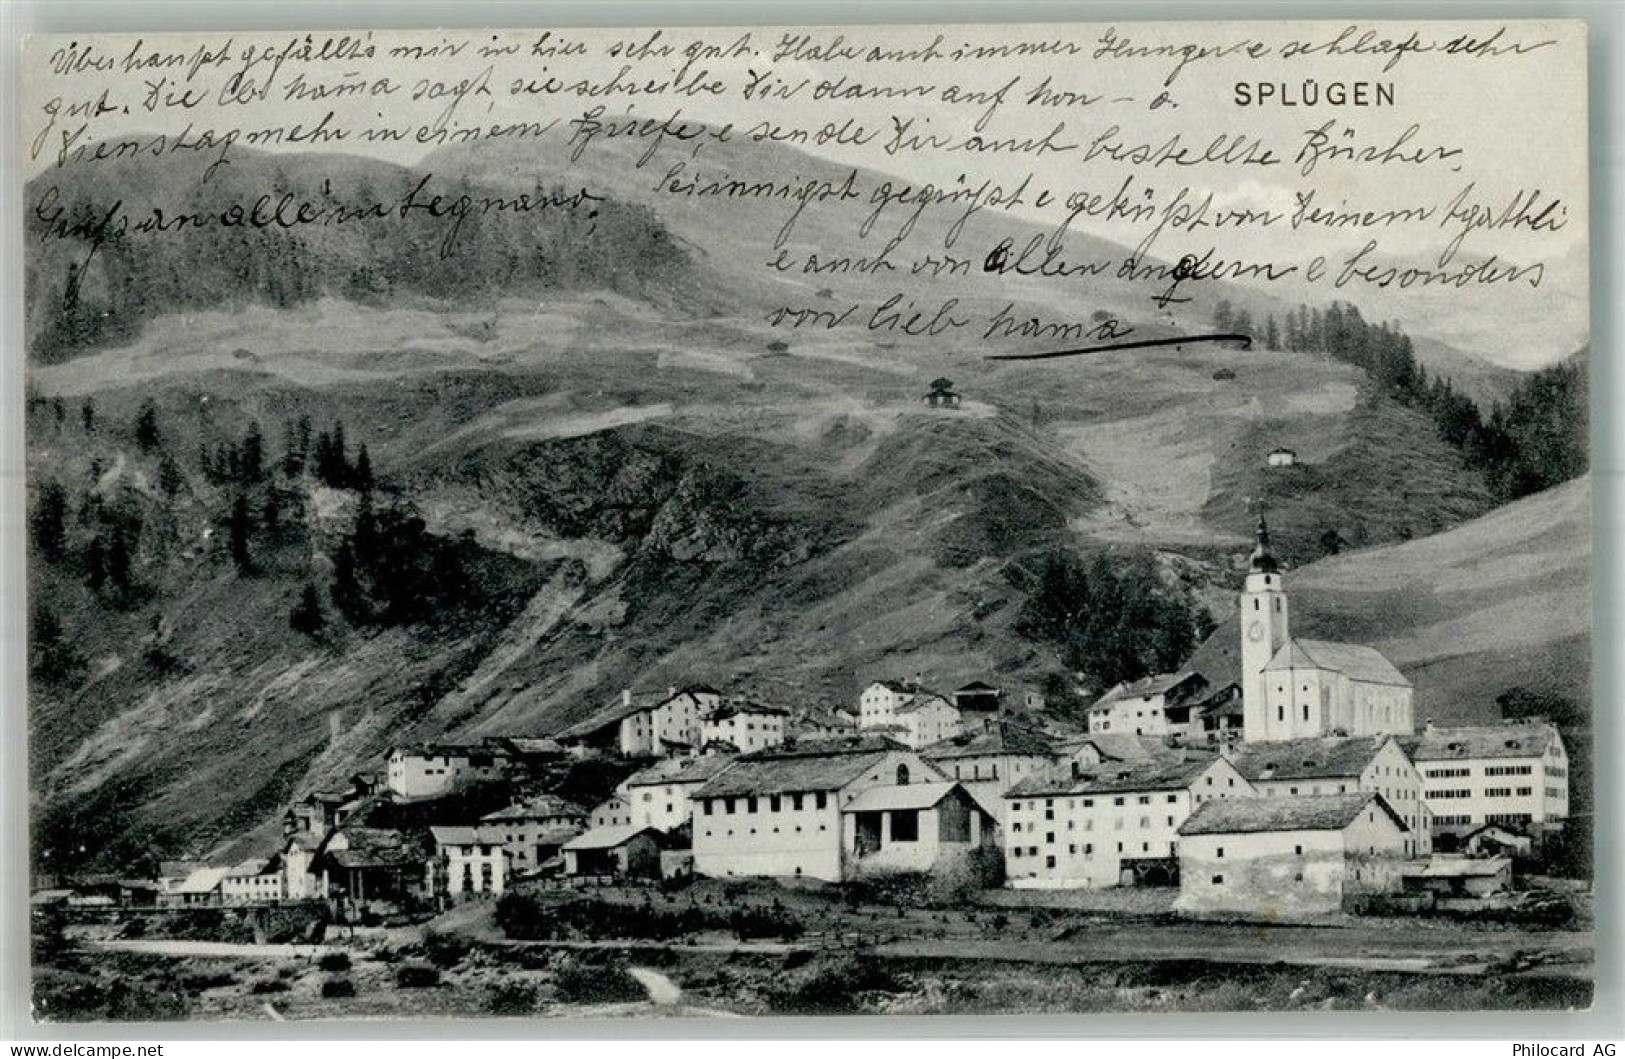 Überhaupt gefällt's mir in hier sehr gut. Habe auch immer Hunger e schlafe sehr
gut. Die lb. Mama sagt, sie schreibe Dir dann auf Mon – o.
SPLÜGEN
Dienstag mehr in einem Briefe, e sende Dir auch bestellte Bücher.
Sei innigst gegrüsst e geküsst von Deinem Agathli
Gruss an alle in Legnano.
e auch von allen andern e besonders
von lieb Mama
Philocard AG
delcampe.net